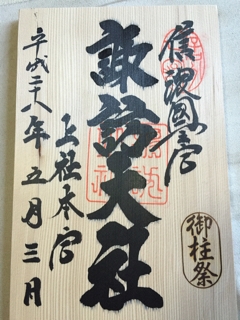 信濃國一宮
諏訪大社
上社本宮
平成二十八年五月三日
御柱祭